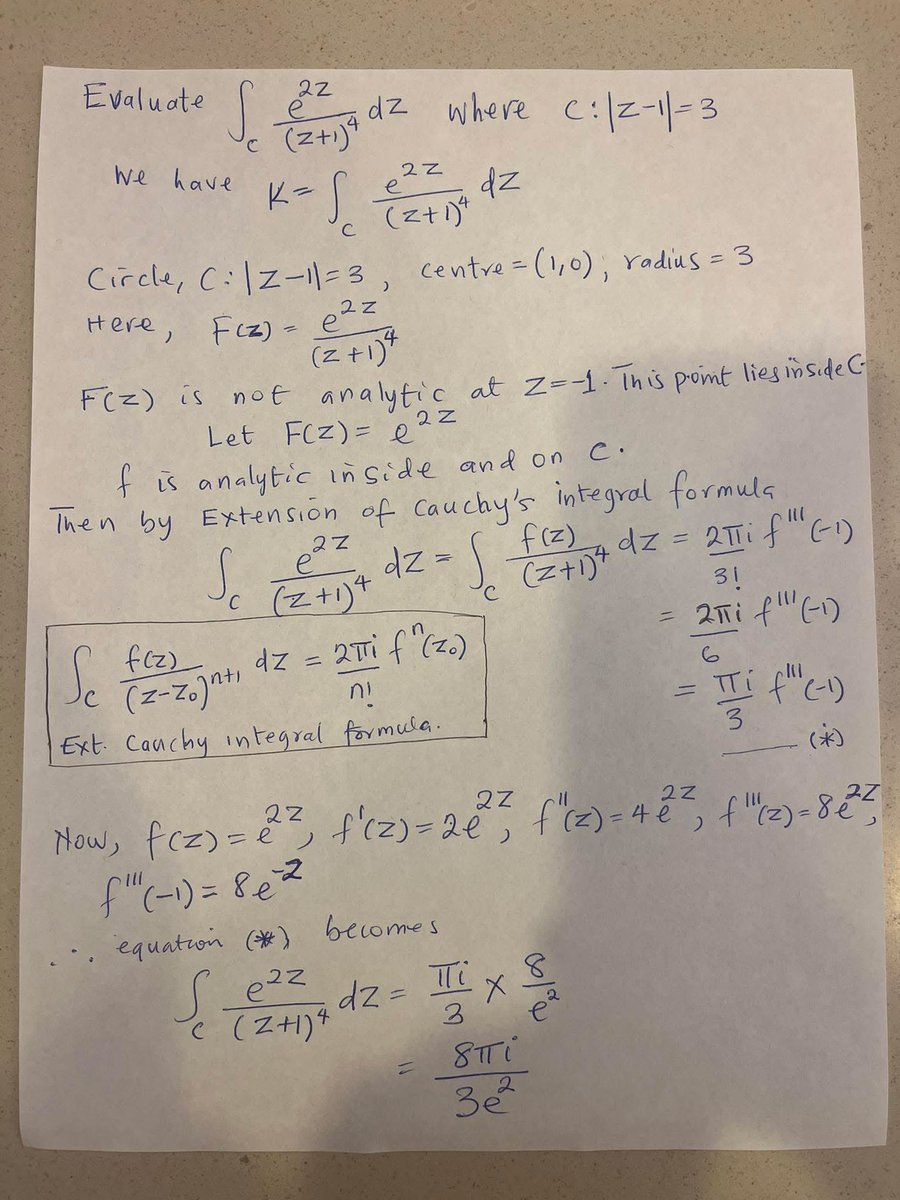 Evaluate ∫_C e^{2z}/(z+1)^4 dz where C: |z-1|=3
We have K = ∫_C e^{2z}/(z+1)^4 dz
Circle, C: |z-1|=3, centre = (1,0), radius = 3
Here, F(z) = e^{2z}/(z+1)^4
F(z) is not analytic at z=-1. This point lies inside C.
Let F(z) = e^{2z}
f is analytic inside and on C.
Then by Extension of Cauchy's integral formula
∫_C e^{2z}/(z+1)^4 dz = ∫_C f(z)/(z+1)^4 dz = 2πi/3! f'''(-1)
= 2πi/6 f'''(-1)
= πi/3 f'''(-1)
____ (*)
∫_C f(z)/(z-z₀)^{n+1} dz = 2πi/n! f^n(z₀)
Ext. Cauchy integral formula.
Now, f(z) = e^{2z}, f'(z) = 2e^{2z}, f''(z) = 4e^{2z}, f'''(z) = 8e^{2z},
f'''(-1) = 8e^{-2}
∴ equation (*) becomes
∫_C e^{2z}/(z+1)^4 dz = πi/3 × 8/e^2
= 8πi/3e^2